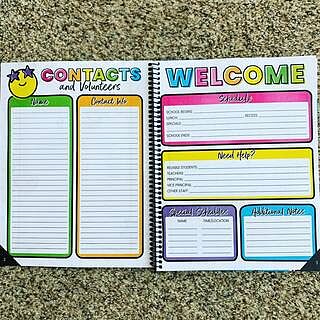 CONTACTS
and Volunteers
Name
Contact Info
WELCOME
Schedule
SCHOOL BEGINS
LUNCH RECESS
SPECIALS
SCHOOL ENDS
Need Help?
RELIABLE STUDENTS
TEACHERS
PRINCIPAL
VICE PRINCIPAL
OTHER STAFF
Special Schedules
NAME TIME/LOCATION
Additional Notes